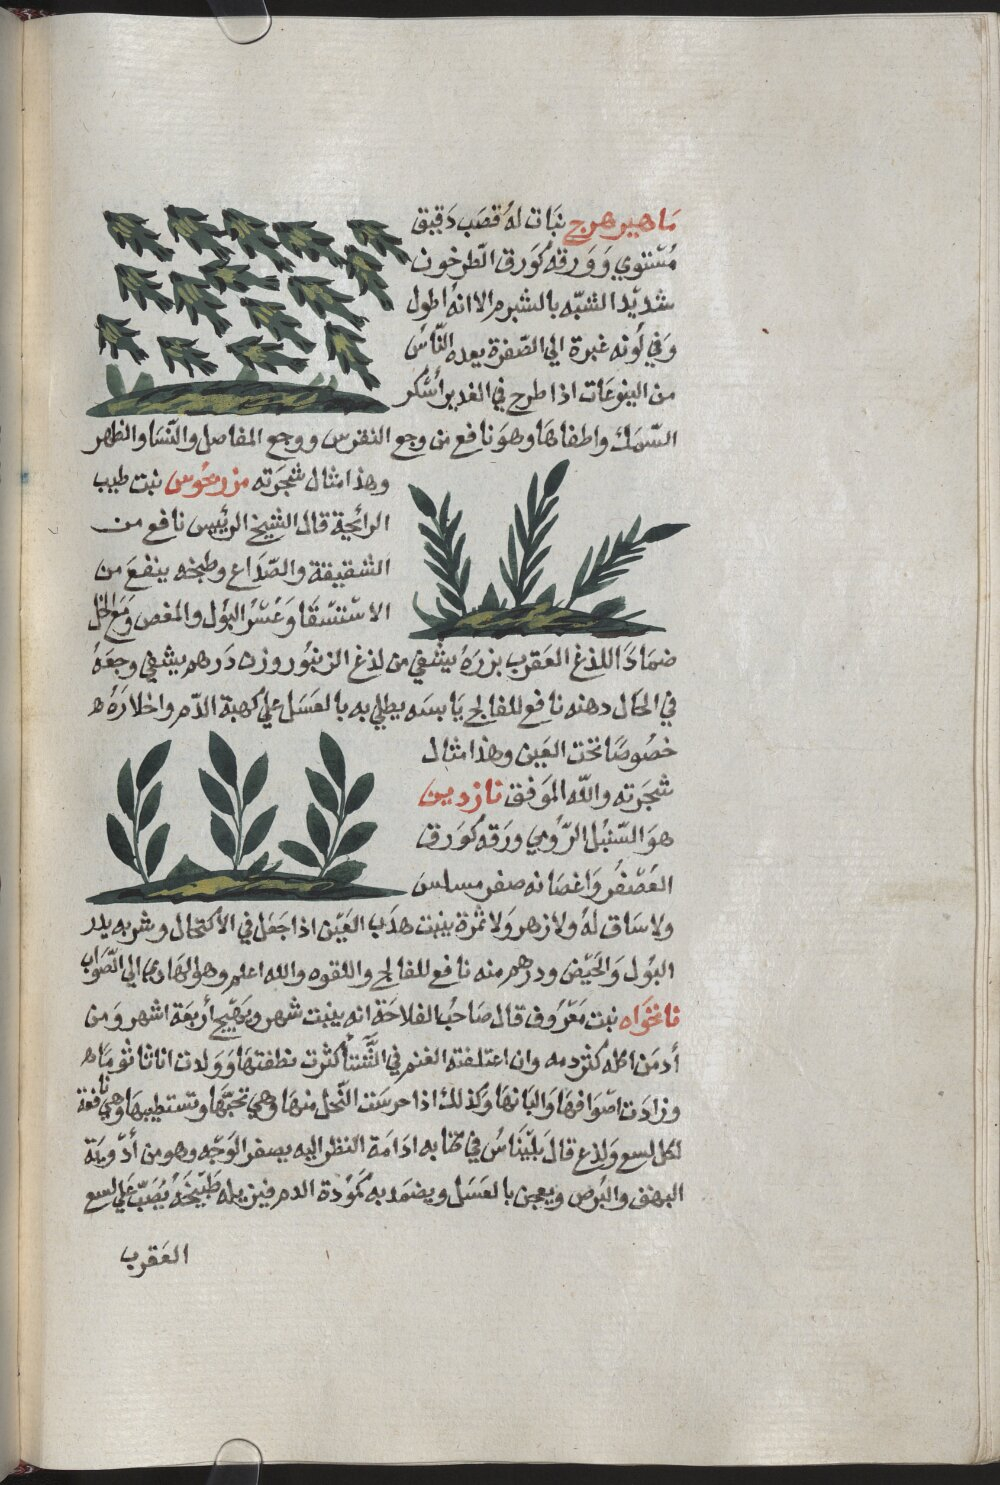 ماهيرهرج نبات له قصب دقيق
مستوي وورقه كورق الطرخون
شديد الشبه بالشبرم الا انه اطول
وفي لونه غبرة الي الصفرة يعده الناس
من اليتوعات اذا طرح في الغدير أسكر
السمك واطفاها وهو نافع من وجع النقرس ووجع المفاصل والنسا والظهر
وهذا مثال شجرته مزرمحوس نبت طيب
الرائحية قال الشيخ الرئيس نافع من
الشقيقة والصداع وطبخه ينفع من
الاستسقا وعسر البول والمغص ومع الخل
ضمادا للذغ العقرب بزره يشفي من لذغ الزنبور وزن درهم يشفي وجعه
في الحال دهنه نافع للفالج يابسه يطلي به بالعسل علي كهبة الدم واخلاره ه
خصوصا تحت العين وهذا مثال
شجرته والله الموفق ناردين
هو السنبل الرومي ورقه كورق
العصفر واغصانه صفر مسلس
ولا ساق له ولا زهر ولا ثمرة ينبت هدب العين اذا جعل في الاكتحال وشربه يدر
البول والحيض ودرهم منه نافع للفالج واللقوه والله اعلم وهو الهادي الي الصواب
نانخواه نبت معروف قال صاحب الفلاحة انه ينبت شهر ويهيج أربعة اشهر ومن
أدمن اكله كثر دمه وان اعتلفته الغنم في الشتا أكثرت نطفتها وولدت اناثا توماه
وزادت اصوافها والبانها وكذلك اذا حرست النحل منها وهي تحبها وتستطيبها وهي نافعة
لكل لسع ولذع قال بليناس في كتابه ادامة النظر اليه يصفر الوجه وهو من أدوية
البهق والبرص ويعجن بالعسل ويضمد به كمودة الدم فيزيله طبيخه يصب علي لسع
العقرب